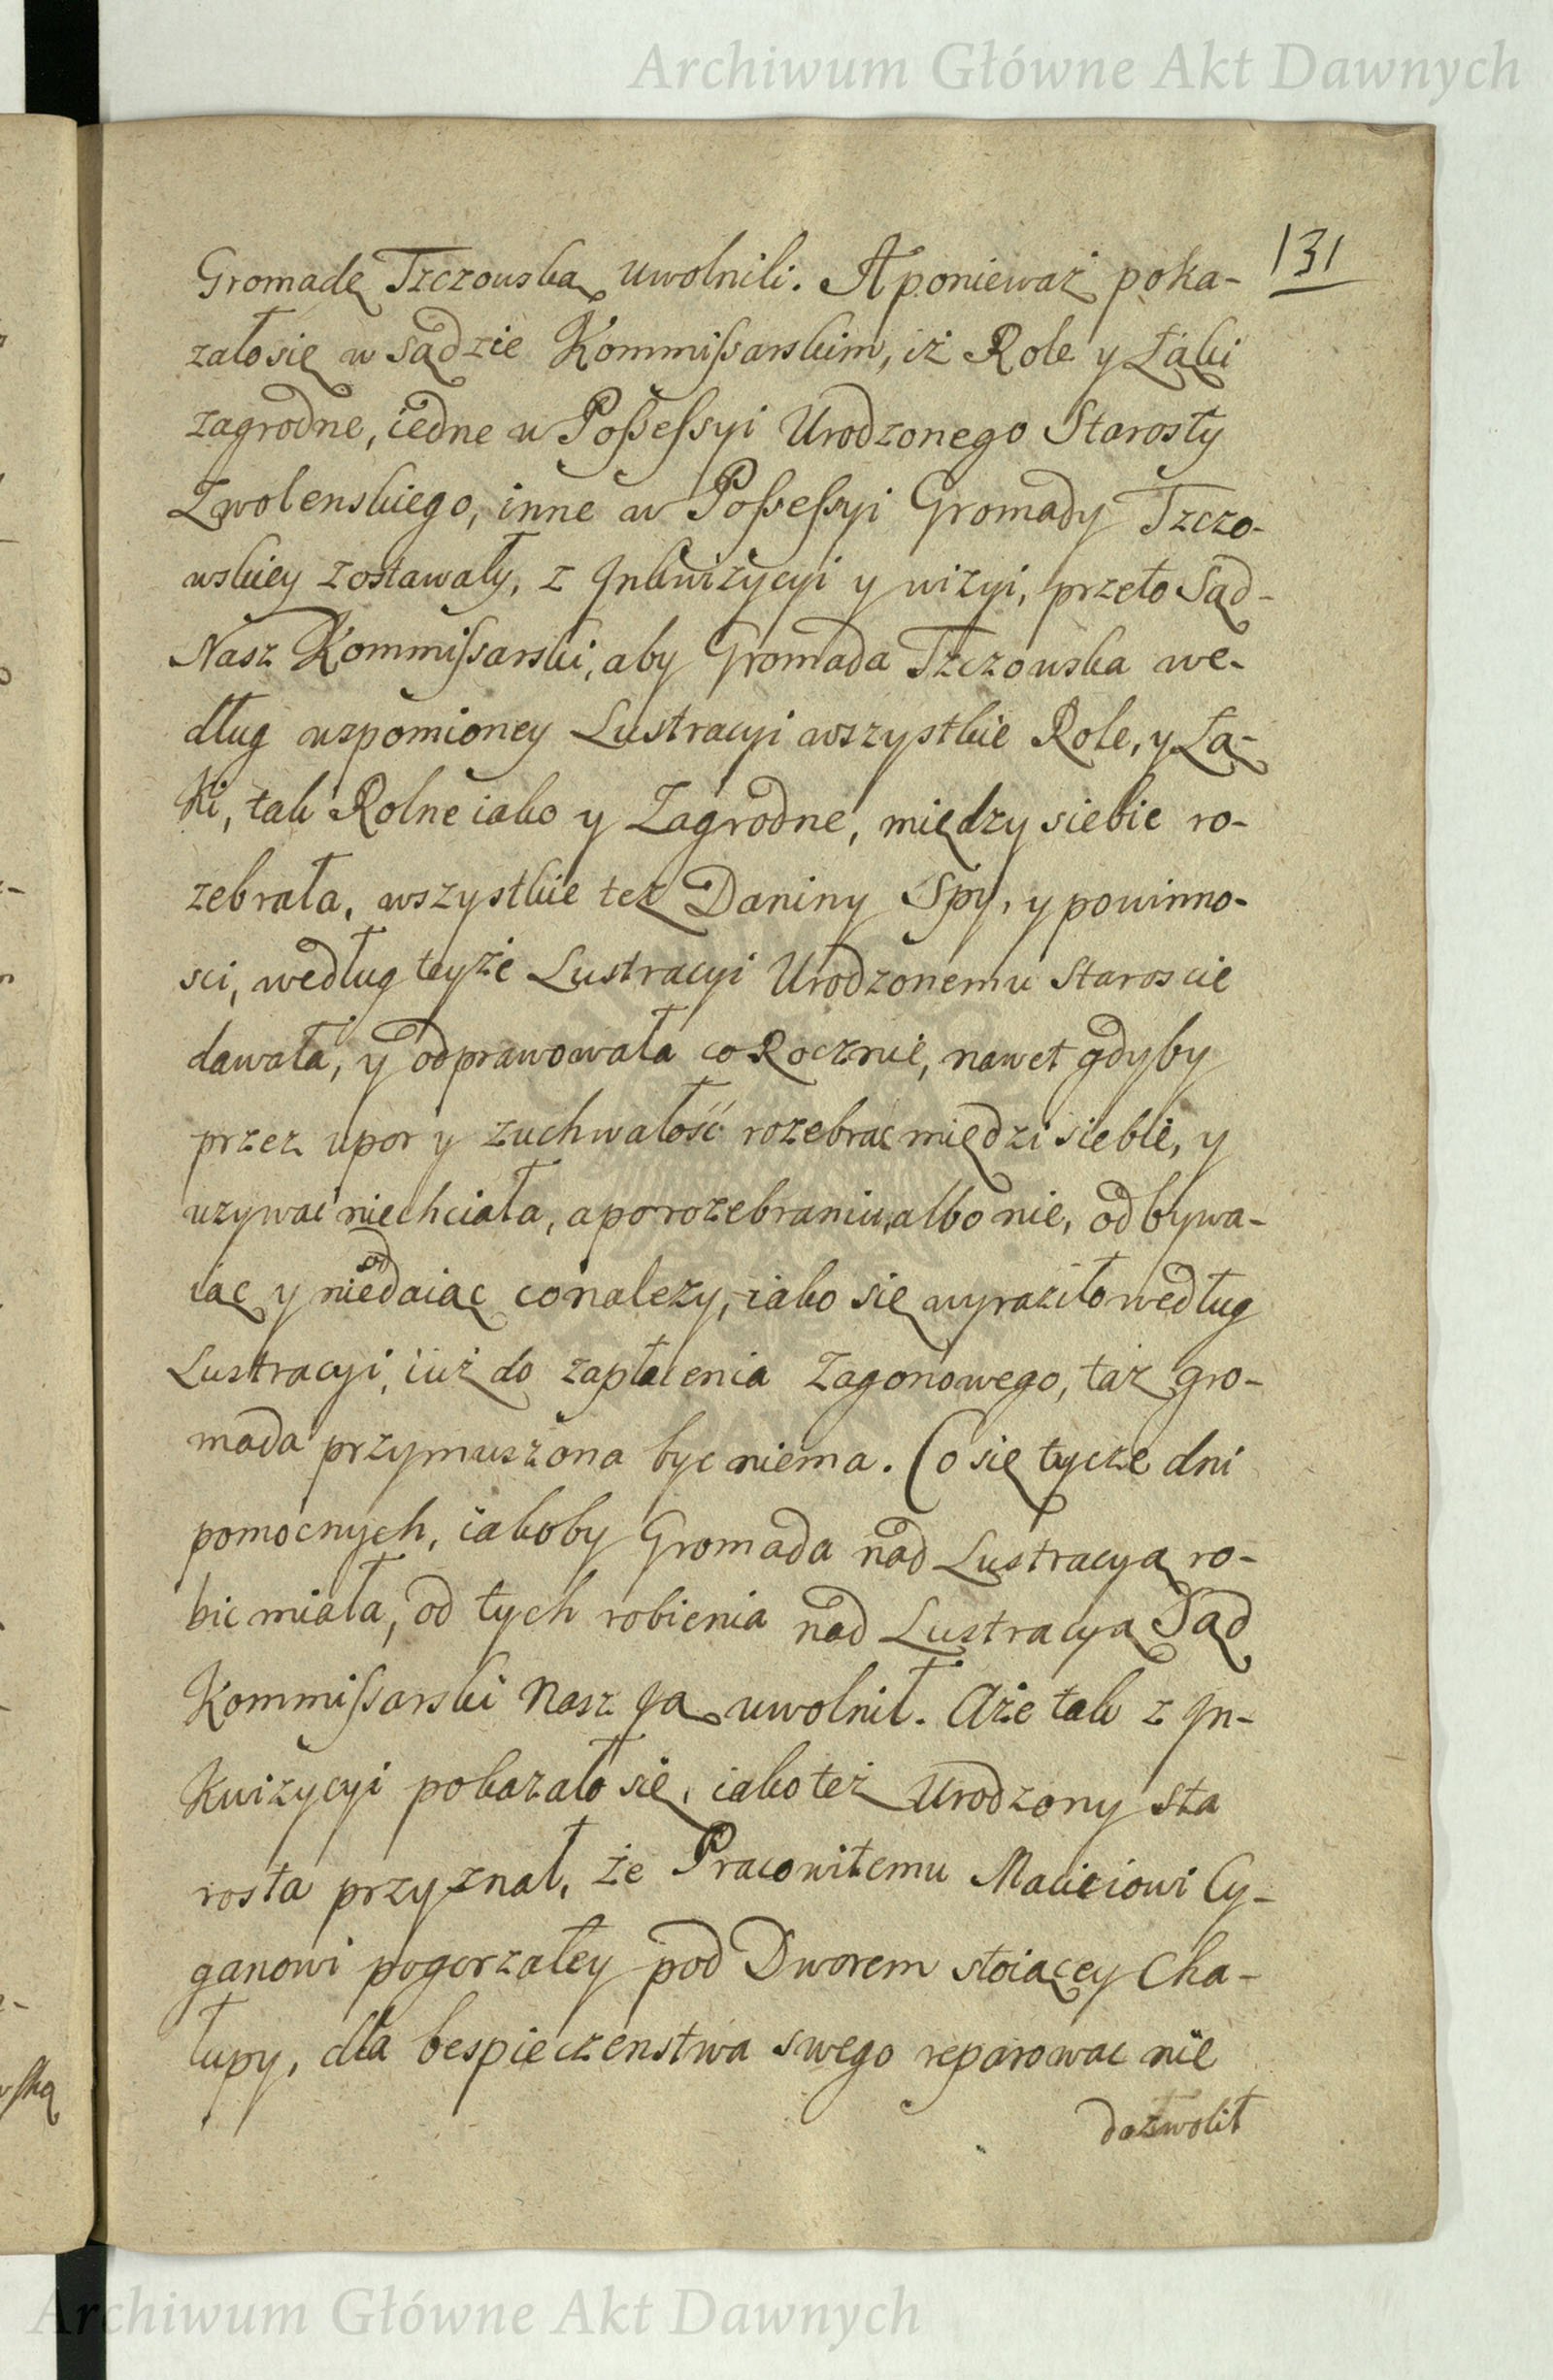 Archiwum Główne Akt Dawnych
131
Gromadę Tzczowską uwolnili. A ponieważ poka-
zało się w Sądzie Kommissarskim, iż Role y Łąki
zagrodne, iedne w Possessyi Urodzonego Starosty
Zwolenskiego, inne w Possessyi Gromady Tzczo-
wskiey zostawały, z Inkwizycyi y wizyi, przeto Sąd
Nasz Kommissarski, aby Gromada Tzczowska we-
dług wspomioney Lustracyi wszystkie Role, y Łą-
ki, tak Rolne iako y Zagrodne, między siebie ro-
zebrała, wszystkie też Daniny Spy, y powinno-
sci, według teyże Lustracyi Urodzonemu Staroscie
dawała, y odprawowała co Rocznie, nawet gdyby
przez upor y zuchwałość rozebrac międzi siebie, y
uzywac niechciała, a po rozebraniu, albo nie, odbywa-
iąc y nieodaiąc co nalezy, iako się wyraziło według
Lustracyi, iuż do zapłacenia Zagonowego, taż gro-
mada przymuszona byc niema. Co się tycze dni
pomocnych, iakoby Gromada nad Lustracyą ro-
bic miała, od tych robienia nad Lustracyą Sąd
Kommissarski Nasz Ją uwolnił. Aże tak z In-
kwizycyi pokazało się, iako też Urodzony Sta
rosta przyznał, że Pracowitemu Macieiowi Cy-
ganowi pogorzałey pod Dworem stoiącey Cha-
łupy, dla bespieczenstwa swego reparowac nie
dozwolił
Archiwum Główne Akt Dawnych